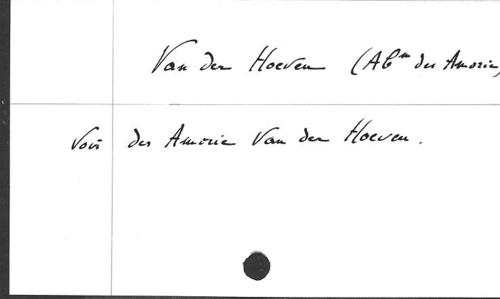 Van der Hoeven (Abm des Amorie)
Voir des Amorie Van der Hoeven.